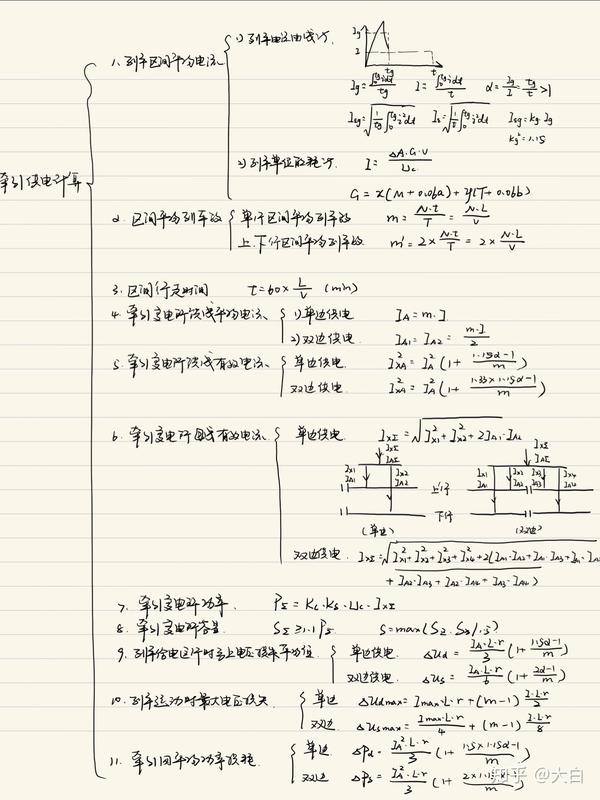 牵引供电计算
1. 列车区间平均电流
1) 列车电流曲线计
Ig
I
tg
t
Ig = ∫₀^tg idt / tg   I = ∫₀^tg idt / t   α = Ig/I = t/tg > 1
Iεg = √(1/tg ∫₀^tg i²dt)   Iε = √(1/t ∫₀^tg i²dt)   Iεg = Kg·Ig
Kg² = 1.15
2) 列车单位能耗计   I = ΔA·G·V / Uc
G = x(M + 0.06a) + y(T + 0.06b)
2. 区间平均列车数
单行区间平均列车数   m = N·t/T = N·L/V
上、下行区间平均列车数   m' = 2 × N·t/T = 2 × N·L/V
3. 区间行走时间   t = 60 × L/V (min)
4. 牵引变电所馈线平均电流
1) 单边供电   IA = m·I
2) 双边供电   IA1 = IA2 = m·I/2
5. 牵引变电所馈线有效电流
单边供电   IxA² = IA²(1 + (1.15α-1)/m)
双边供电   IxA² = IA²(1 + (1.33×1.15α-1)/m)
6. 牵引变电所母线有效电流
单边供电   IxΣ = √(Ix1² + Ix2² + 2IA1·IA2)
IxΣ
IAΣ
Ix1
IA1
Ix2
IA2
上行
下行
(单边)
IxΣ
IAΣ
Ix1
IA1
Ix2
IA2
Ix3
IA3
Ix4
IA4
(双边)
双边供电   IxΣ = √(Ix1² + Ix2² + Ix3² + Ix4² + 2(IA1·IA2 + IA1·IA3 + IA1·IA4
+ IA2·IA3 + IA2·IA4 + IA3·IA4)
7. 牵引变电所功率   PΣ = Kc·Ks·Uc·IxΣ
8. 牵引变电所容量   SΣ ≥ 1.1PΣ
9. 列车给电运行时至上电压损失平均值
单边供电   ΔUd = IA·L·r/3 (1 + (1.5α-1)/m)
双边供电   ΔUs = IA·L·r/6 (1 + (2α-1)/m)
10. 列车运动时最大电压损失
单边   ΔUdmax = Imax·L·r + (m-1) I·L·r/2
双边   ΔUsmax = Imax·L·r/4 + (m-1) I·L·r/8
11. 牵引网平均功率损耗
单边   ΔPd = IA²·L·r/3 (1 + (1.5×1.15α-1)/m)
双边   ΔPs = IA²·L·r/3 (1 +
知乎 @大白